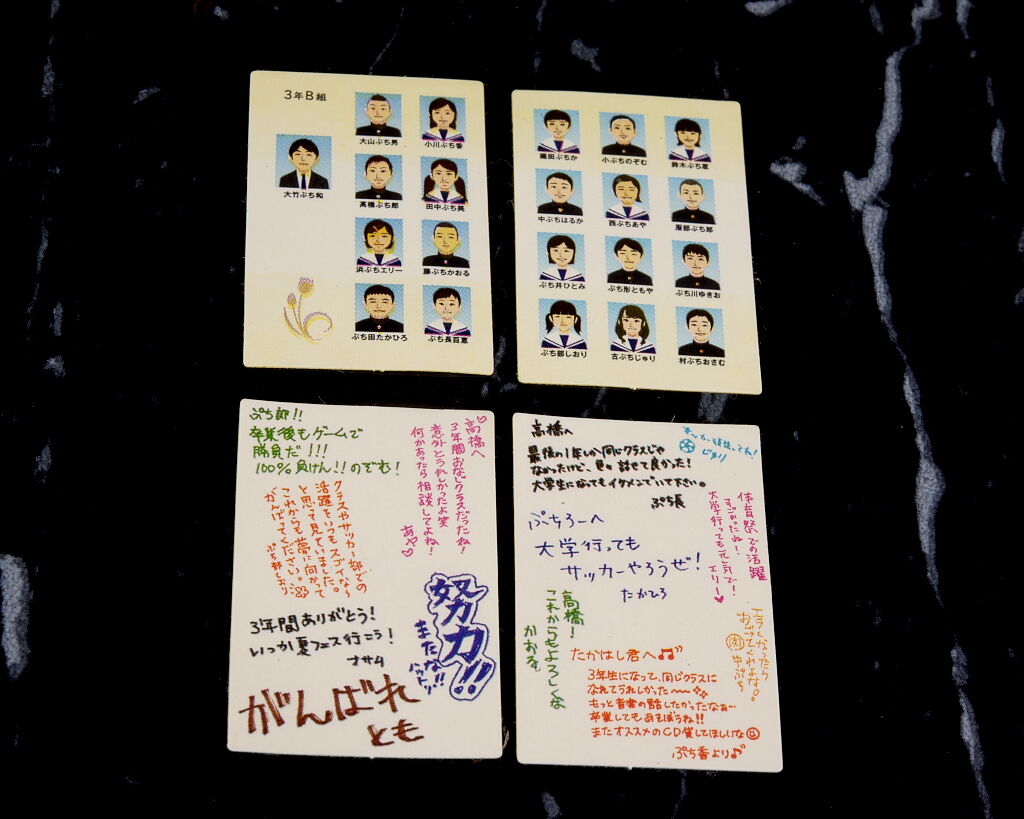 3年B組
大竹ぷち和
大山ぷち男
小川ぷち香
高橋ぷち郎
田中ぷち美
浜ぷちエリー
藤ぷちかおる
ぷち田たかひろ
ぷち長百恵
織田ぷちか
小ぷちのぞむ
鈴木ぷち恵
中ぷちはるか
西ぷちあや
服部ぷち郎
ぷち井ひとみ
ぷち形ともや
ぷち川ゆきお
ぷち部しおり
古ぷちじゅり
村ぷちおさむ
ぷち郎!!
卒業後もゲームで
勝負だ!!!
100%負けん!!のぞむ!
高橋へ
3年間おなじクラスだったね!
意外とうれしかったよ笑
何かあったら相談してよね!
あや♡
クラスやサッカー部での
活躍をいつもスゴイなぁ〜
と思って見ていました。
これからも夢に向かって
がんばってください。
ぷち部しおり
努力!!
またな!!
ハットリ
3年間ありがとう!
いつか夏フェス行こう!
オサム
がんばれ
とも
高橋へ
最後の1年しか同じクラスじゃ
なかったけど、色々話せて良かった!
大学生になってもイケメンでいて下さい。
ぷち長
サッカー頑張ってね!
じゅり
ぷちろーへ
大学行っても
サッカーやろうぜ!
たかひろ
体育祭での活躍
すごかったね!
大学行っても元気で!
エリー♥
高橋!
これからもよろしくな
かおる
エラくなったら
おごってくれよな。
肉 中ぷち
たかはし君へ♫
3年生になって、同じクラスに
なれてうれしかった〜〜
もっと音楽の話したかったなぁ…
卒業してもあそぼうね!!
またオススメのCD貸してほしいな
ぷち香より♪